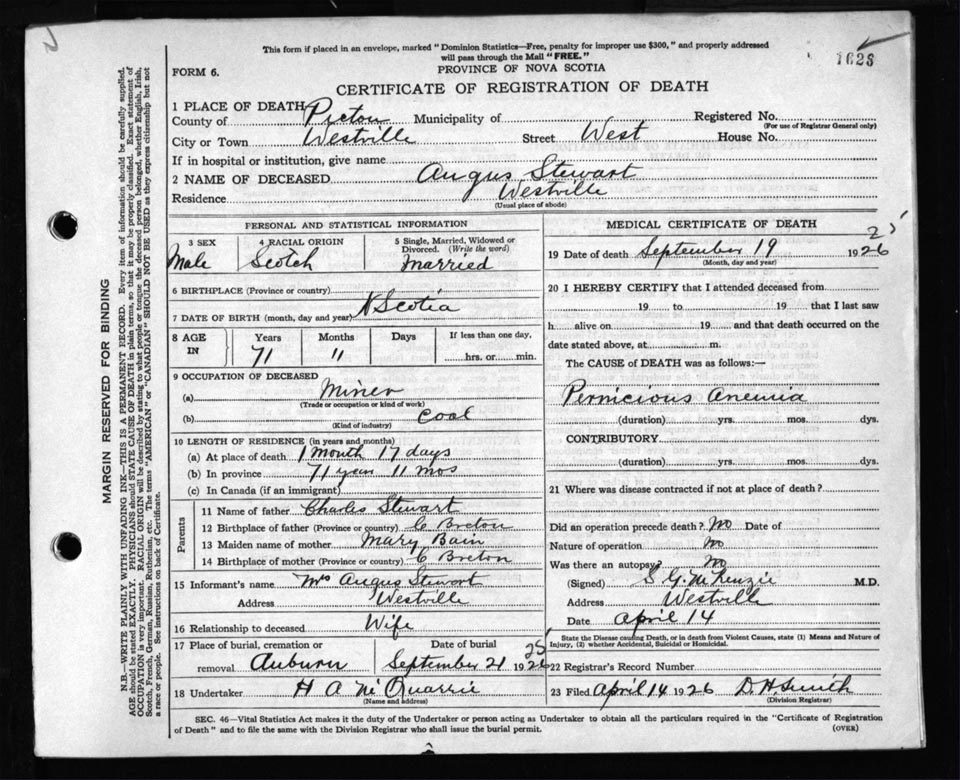 This form if placed in an envelope, marked "Dominion Statistics—Free, penalty for improper use $300," and properly addressed
will pass through the Mail "FREE."
1623
FORM 6.
PROVINCE OF NOVA SCOTIA
CERTIFICATE OF REGISTRATION OF DEATH
1 PLACE OF DEATH
County of Picton Municipality of Registered No.
(For use of Registrar General only)
City or Town Westville Street West House No.
If in hospital or institution, give name
2 NAME OF DECEASED Angus Stewart
Residence Westville
(Usual place of abode)
PERSONAL AND STATISTICAL INFORMATION
3 SEX 4 RACIAL ORIGIN 5 Single, Married, Widowed or
Divorced. (Write the word)
Male Scotch Married
6 BIRTHPLACE (Province or country)
N Scotia
7 DATE OF BIRTH (month, day and year)
8 AGE IN Years Months Days If less than one day,
71 11 hrs. or min.
9 OCCUPATION OF DECEASED
(a) Miner
(Trade or occupation or kind of work)
(b) Coal
(Kind of industry)
10 LENGTH OF RESIDENCE (in years and months)
(a) At place of death 1 month 17 days
(b) In province 71 year 11 mos
(c) In Canada (if an immigrant)
Parents
11 Name of father Charles Stewart
12 Birthplace of father (Province or country) C Breton
13 Maiden name of mother Mary Bain
14 Birthplace of mother (Province or country) C Breton
15 Informant's name Mrs Angus Stewart
Address Westville
16 Relationship to deceased Wife
17 Place of burial, cremation or Date of burial
removal Auburn September 21 1926 25
18 Undertaker H A McQuarrie
(Name and address)
MEDICAL CERTIFICATE OF DEATH
19 Date of death September 19 1926 25
(Month, day and year)
20 I HEREBY CERTIFY that I attended deceased from
19 to 19 that I last saw
h alive on 19 and that death occurred on the
date stated above, at m.
The CAUSE of DEATH was as follows:—
Pernicious Anemia
(duration) yrs. mos. dys.
CONTRIBUTORY
(duration) yrs. mos. dys.
21 Where was disease contracted if not at place of death?
Did an operation precede death? No Date of
Nature of operation No
Was there an autopsy? No
(Signed) S G McKenzie M.D.
Address Westville
Date April 14
State the Disease causing Death, or in death from Violent Causes, state (1) Means and Nature of
Injury, (2) whether Accidental, Suicidal or Homicidal.
22 Registrar's Record Number
23 Filed April 14 1926 D. H. Smith
(Division Registrar)
SEC. 46—Vital Statistics Act makes it the duty of the Undertaker or person acting as Undertaker to obtain all the particulars required in the "Certificate of Registration
of Death" and to file the same with the Division Registrar who shall issue the burial permit.
(OVER)
MARGIN RESERVED FOR BINDING
N.B.—WRITE PLAINLY WITH UNFADING INK—THIS IS A PERMANENT RECORD. Every item of information should be carefully supplied.
AGE should be stated EXACTLY. PHYSICIANS should STATE CAUSE OF DEATH in plain terms, so that it may be properly classified. Exact statement of
OCCUPATION is very important. RACIAL ORIGIN will be described by stating to what people or tongue the deceased person belonged, whether English, Irish,
Scotch, French, German, Russian, Ruthenian, etc. The terms "AMERICAN" or "CANADIAN" SHOULD NOT BE USED as they express citizenship but not
a race or people. See instructions on back of Certificate.